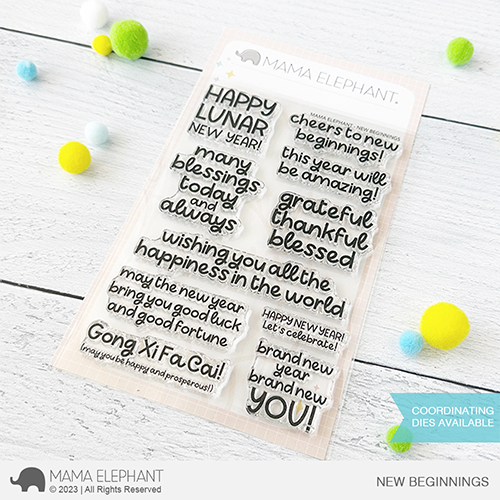 MAMA ELEPHANT
© 2023 | All Rights Reserved
MAMA ELEPHANT.
MAMA ELEPHANT · NEW BEGINNINGS
HAPPY
LUNAR
NEW YEAR!
cheers to new
beginnings!
this year will
be amazing!
many
blessings
today
and
always
grateful
thankful
blessed
wishing you all the
happiness in the world
may the new year
bring you good luck
and good fortune
HAPPY NEW YEAR!
Let's celebrate!
Gong Xi Fa Cai!
(may you be happy and prosperous!)
brand new
year
brand new
YOU!
COORDINATING
DIES AVAILABLE
MAMA ELEPHANT
© 2023 | All Rights Reserved
NEW BEGINNINGS